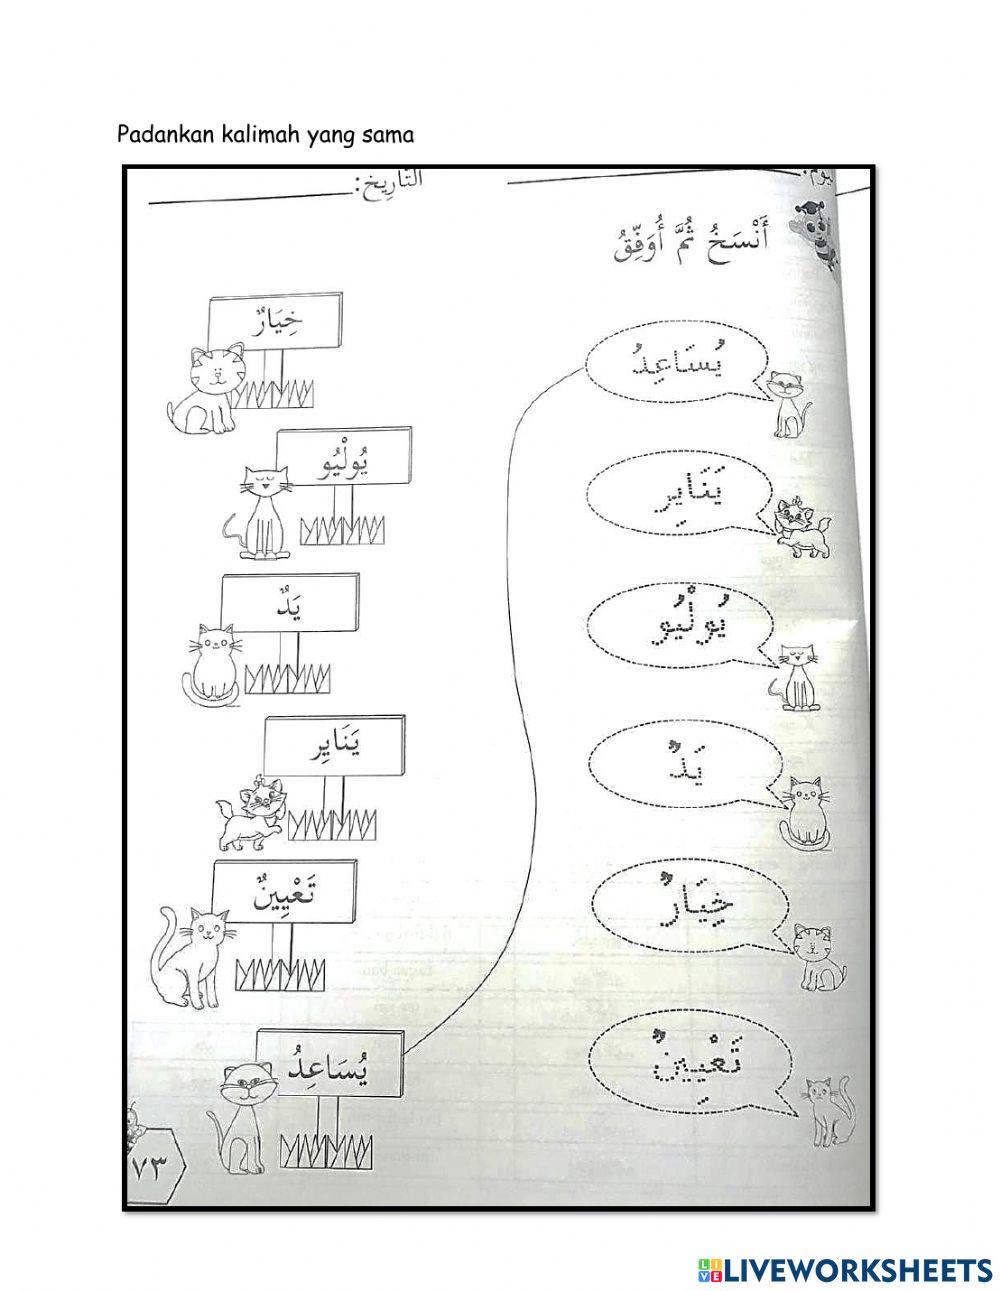 Padankan kalimah yang sama
التَّارِيخ:
يوم:
أَنْسَخُ ثُمَّ أُوَفِّقُ
يُسَاعِدُ
خِيَارٌ
يَنَايِر
يُولْيُو
يُولْيُو
يَدٌ
يَدٌ
يَنَايِر
خِيَارٌ
تَعْيِينٌ
تَعْيِينٌ
يُسَاعِدُ
٧٣
LIVE LIVEWORKSHEETS